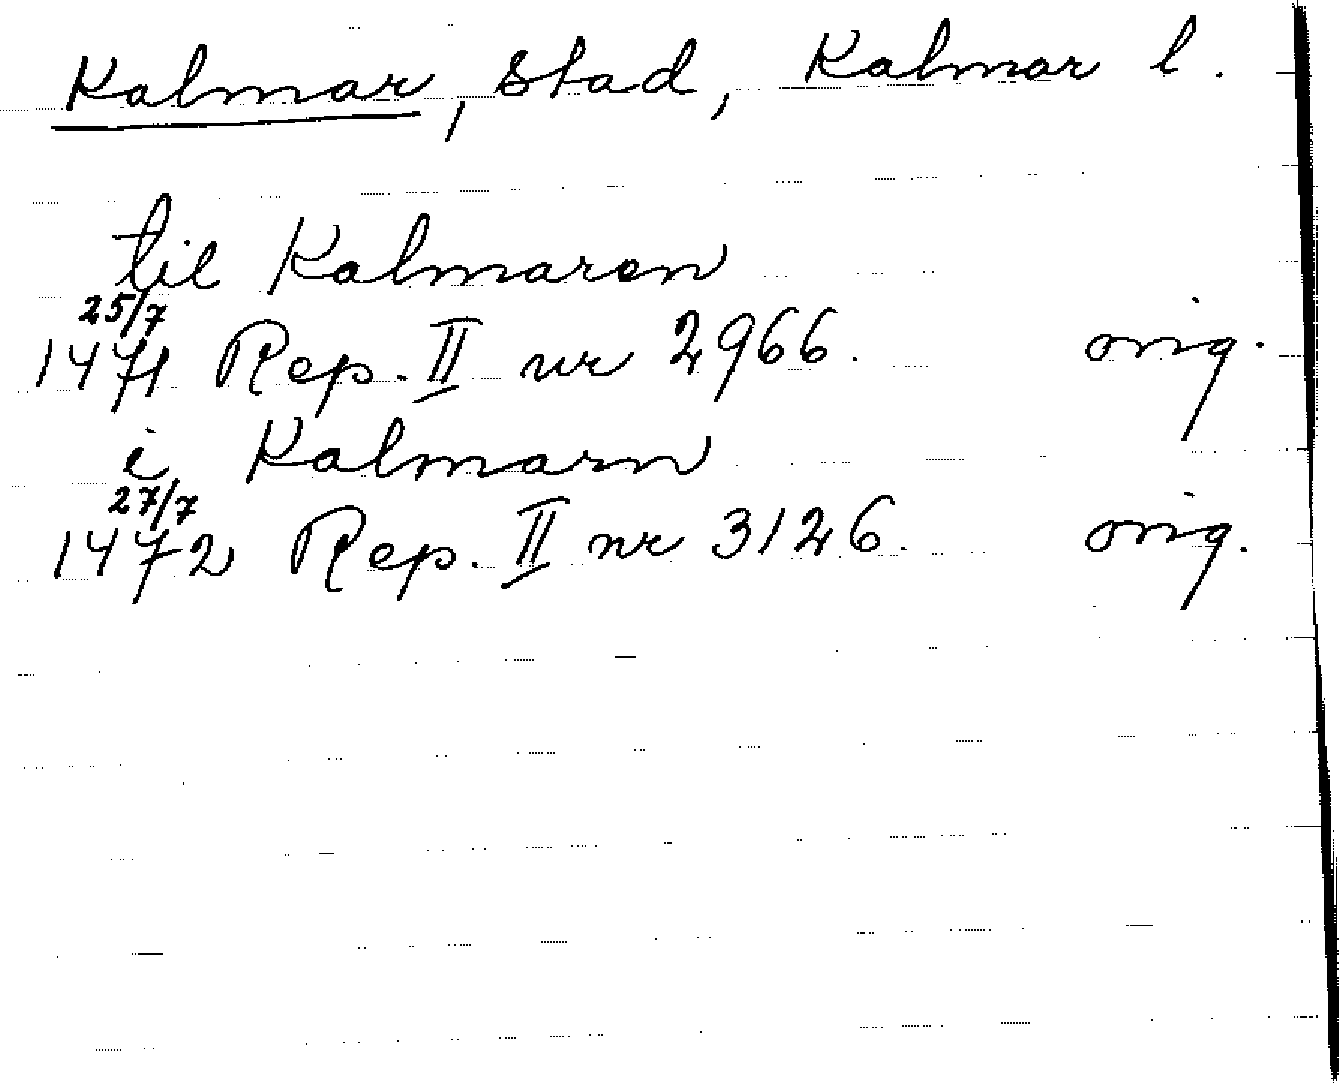 Kalmar, stad, Kalmar l.
til Kalmaren
25/7
1471 Rep. II nr 2966. orig.
i Kalmarn
27/7
1472 Rep. II nr 3126. orig.